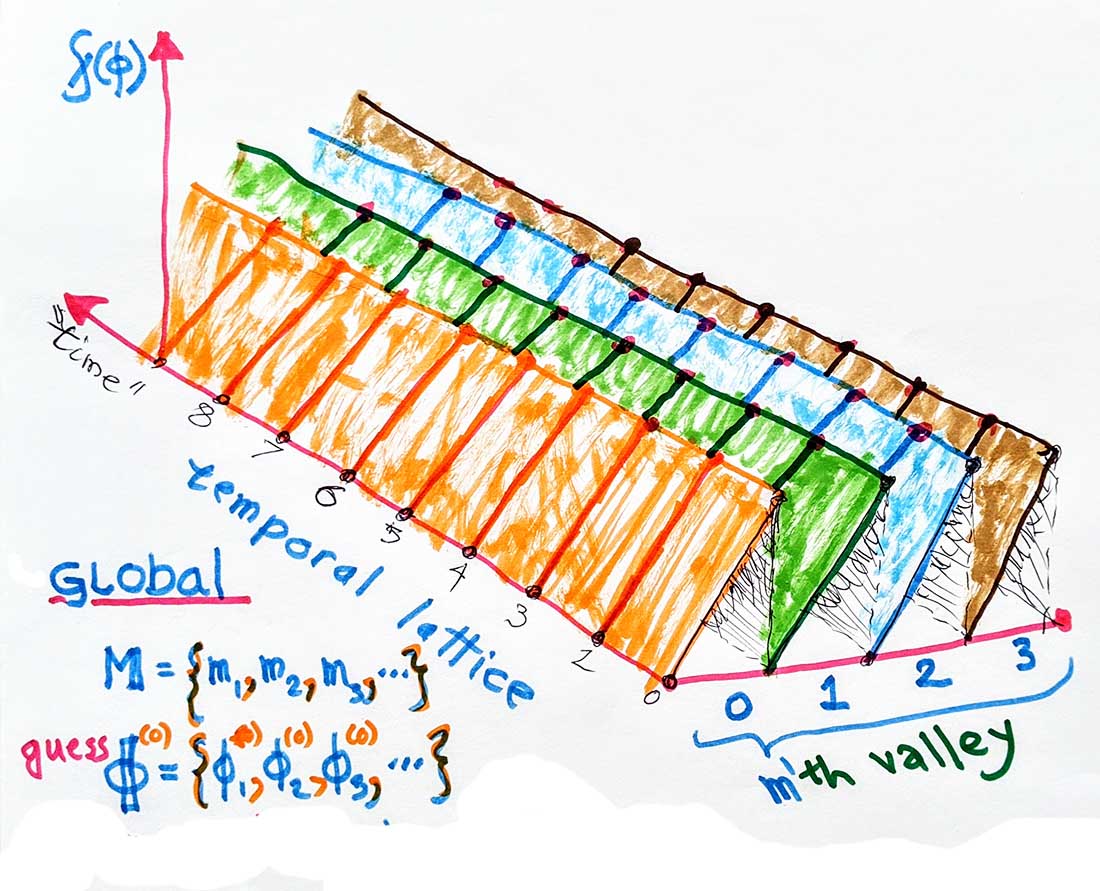 f(ϕ)
"time"
8
7
6
5
4
3
2
0
temporal lattice
0 1 2 3
m'th valley
GLOBAL
M = {m₁, m₂, m₃, ...}
guess Φ⁽⁰⁾ = {ϕ₁⁽⁰⁾, ϕ₂⁽⁰⁾, ϕ₃⁽⁰⁾, ...}